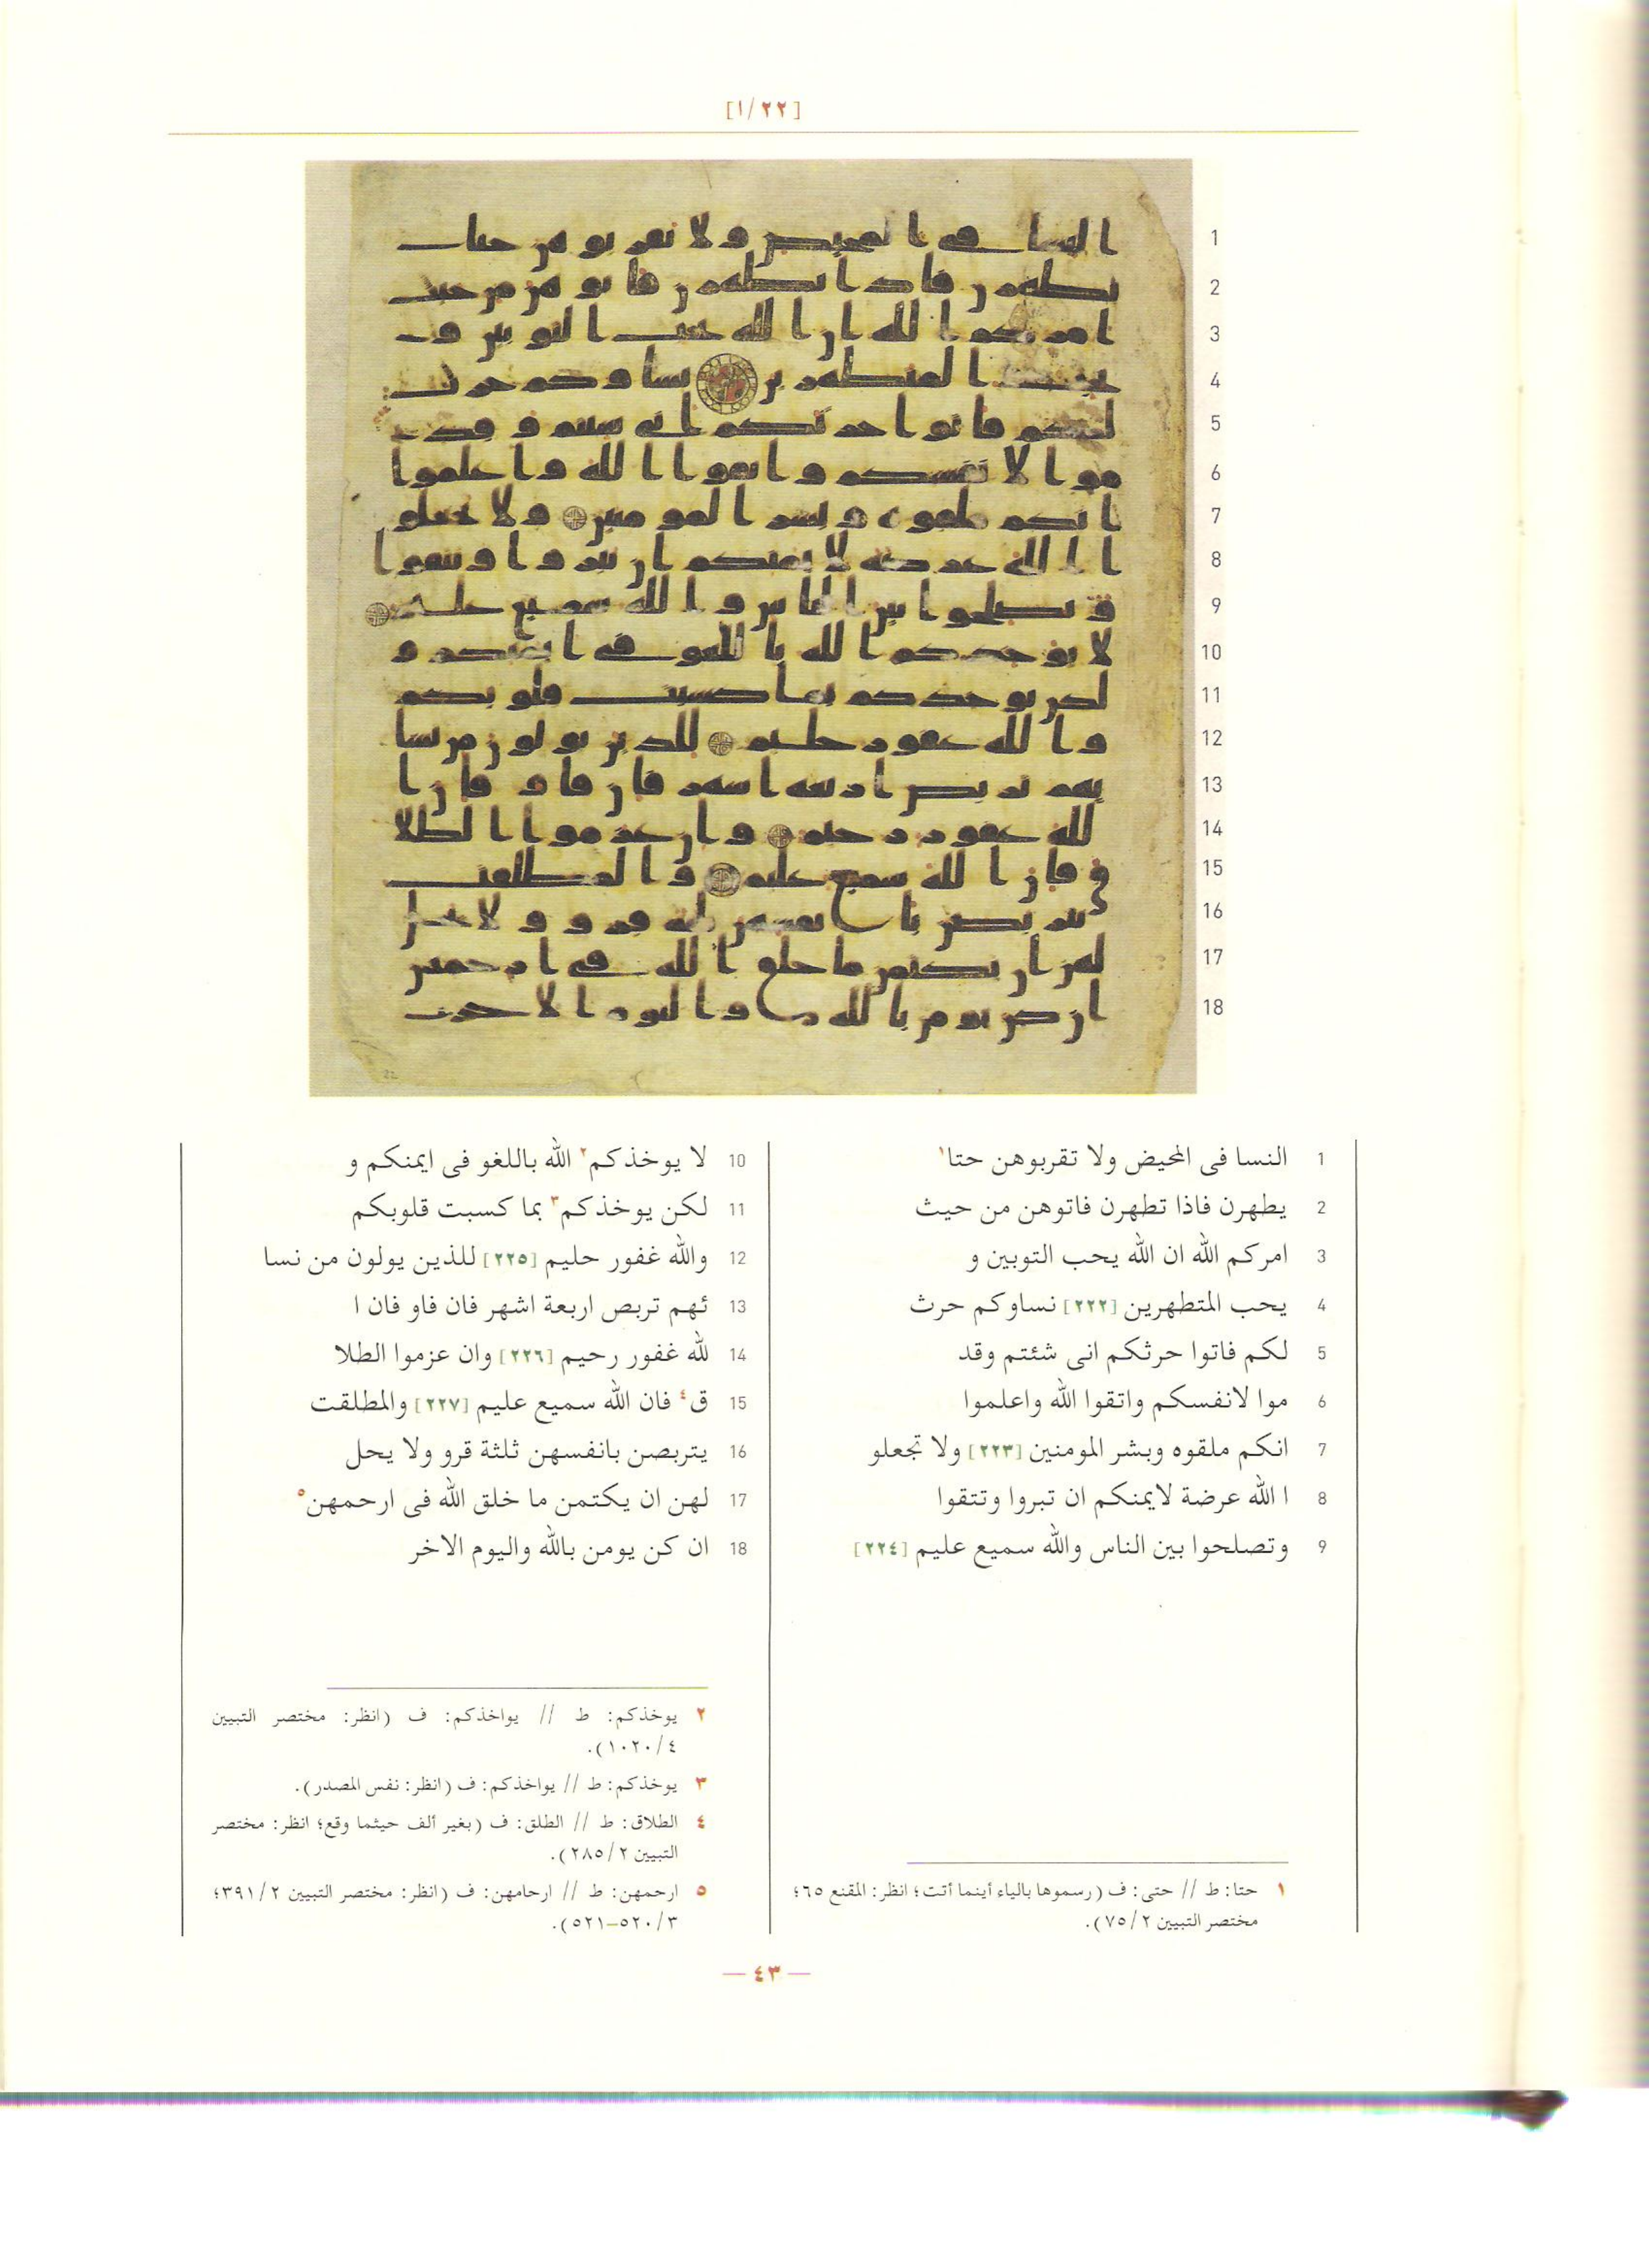 [١/٢٢]
1 النسا فى المحيض ولا تقربوهن حتا١
2 يطهرن فاذا تطهرن فاتوهن من حيث
3 امركم الله ان الله يحب التوبين و
4 يحب المتطهرين [٢٢٢] نساوكم حرث
5 لكم فاتوا حرثكم انى شئتم وقد
6 موا لانفسكم واتقوا الله واعلموا
7 انكم ملقوه وبشر المومنين [٢٢٣] ولا تجعلو
8 ا الله عرضة لايمنكم ان تبروا وتتقوا
9 وتصلحوا بين الناس والله سميع عليم [٢٢٤]
١ حتا: ط // حتى: ف (رسموها بالياء أينما أتت؛ انظر: المقنع ٦٥؛
مختصر التبيين ٧٥/٢).
10 لا يوخذكم٢ الله باللغو فى ايمنكم و
11 لكن يوخذكم٣ بما كسبت قلوبكم
12 والله غفور حليم [٢٢٥] للذين يولون من نسا
13 ئهم تربص اربعة اشهر فان فاو فان ا
14 لله غفور رحيم [٢٢٦] وان عزموا الطلا
15 ق٤ فان الله سميع عليم [٢٢٧] والمطلقت
16 يتربصن بانفسهن ثلثة قرو ولا يحل
17 لهن ان يكتمن ما خلق الله فى ارحمهن٥
18 ان كن يومن بالله واليوم الاخر
٢ يوخذكم: ط // يواخذكم: ف (انظر: مختصر التبيين
١٠٢٠/٤).
٣ يوخذكم: ط // يواخذكم: ف (انظر: نفس المصدر).
٤ الطلاق: ط // الطلق: ف (بغير ألف حيثما وقع؛ انظر: مختصر
التبيين ٢٨٥/٢).
٥ ارحمهن: ط // ارحامهن: ف (انظر: مختصر التبيين ٣٩١/٢؛
٥٢٠/٣–٥٢١).
— ٤٣ —